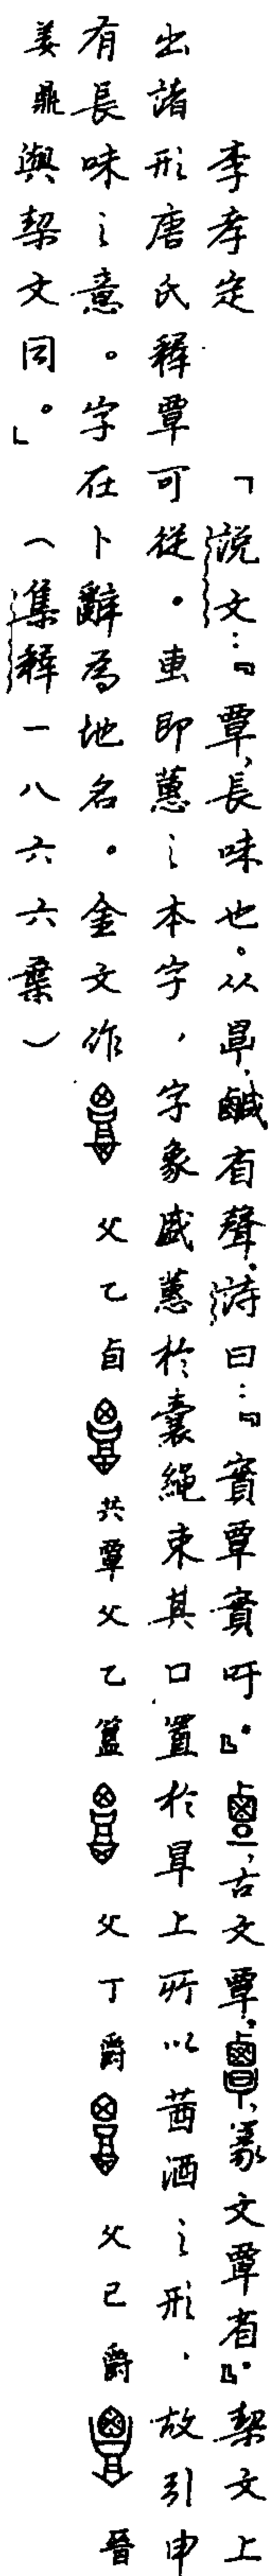 李孝定　「說文：『覃，長味也。从㫗，鹹省聲。詩曰：『實覃實吁』。，古文覃。，篆文覃省』。契文上
出諸形唐氏釋覃可從。叀即蕙之本字，字象盛蕙於囊繩束其口置於㫗上所以茜酒之形，故引申
有長味之意。字在卜辭為地名。金文作　父乙卣　共覃父乙簋　父丁爵　父己爵　晉
姜鼎與契文同。」（集釋一八六六葉）